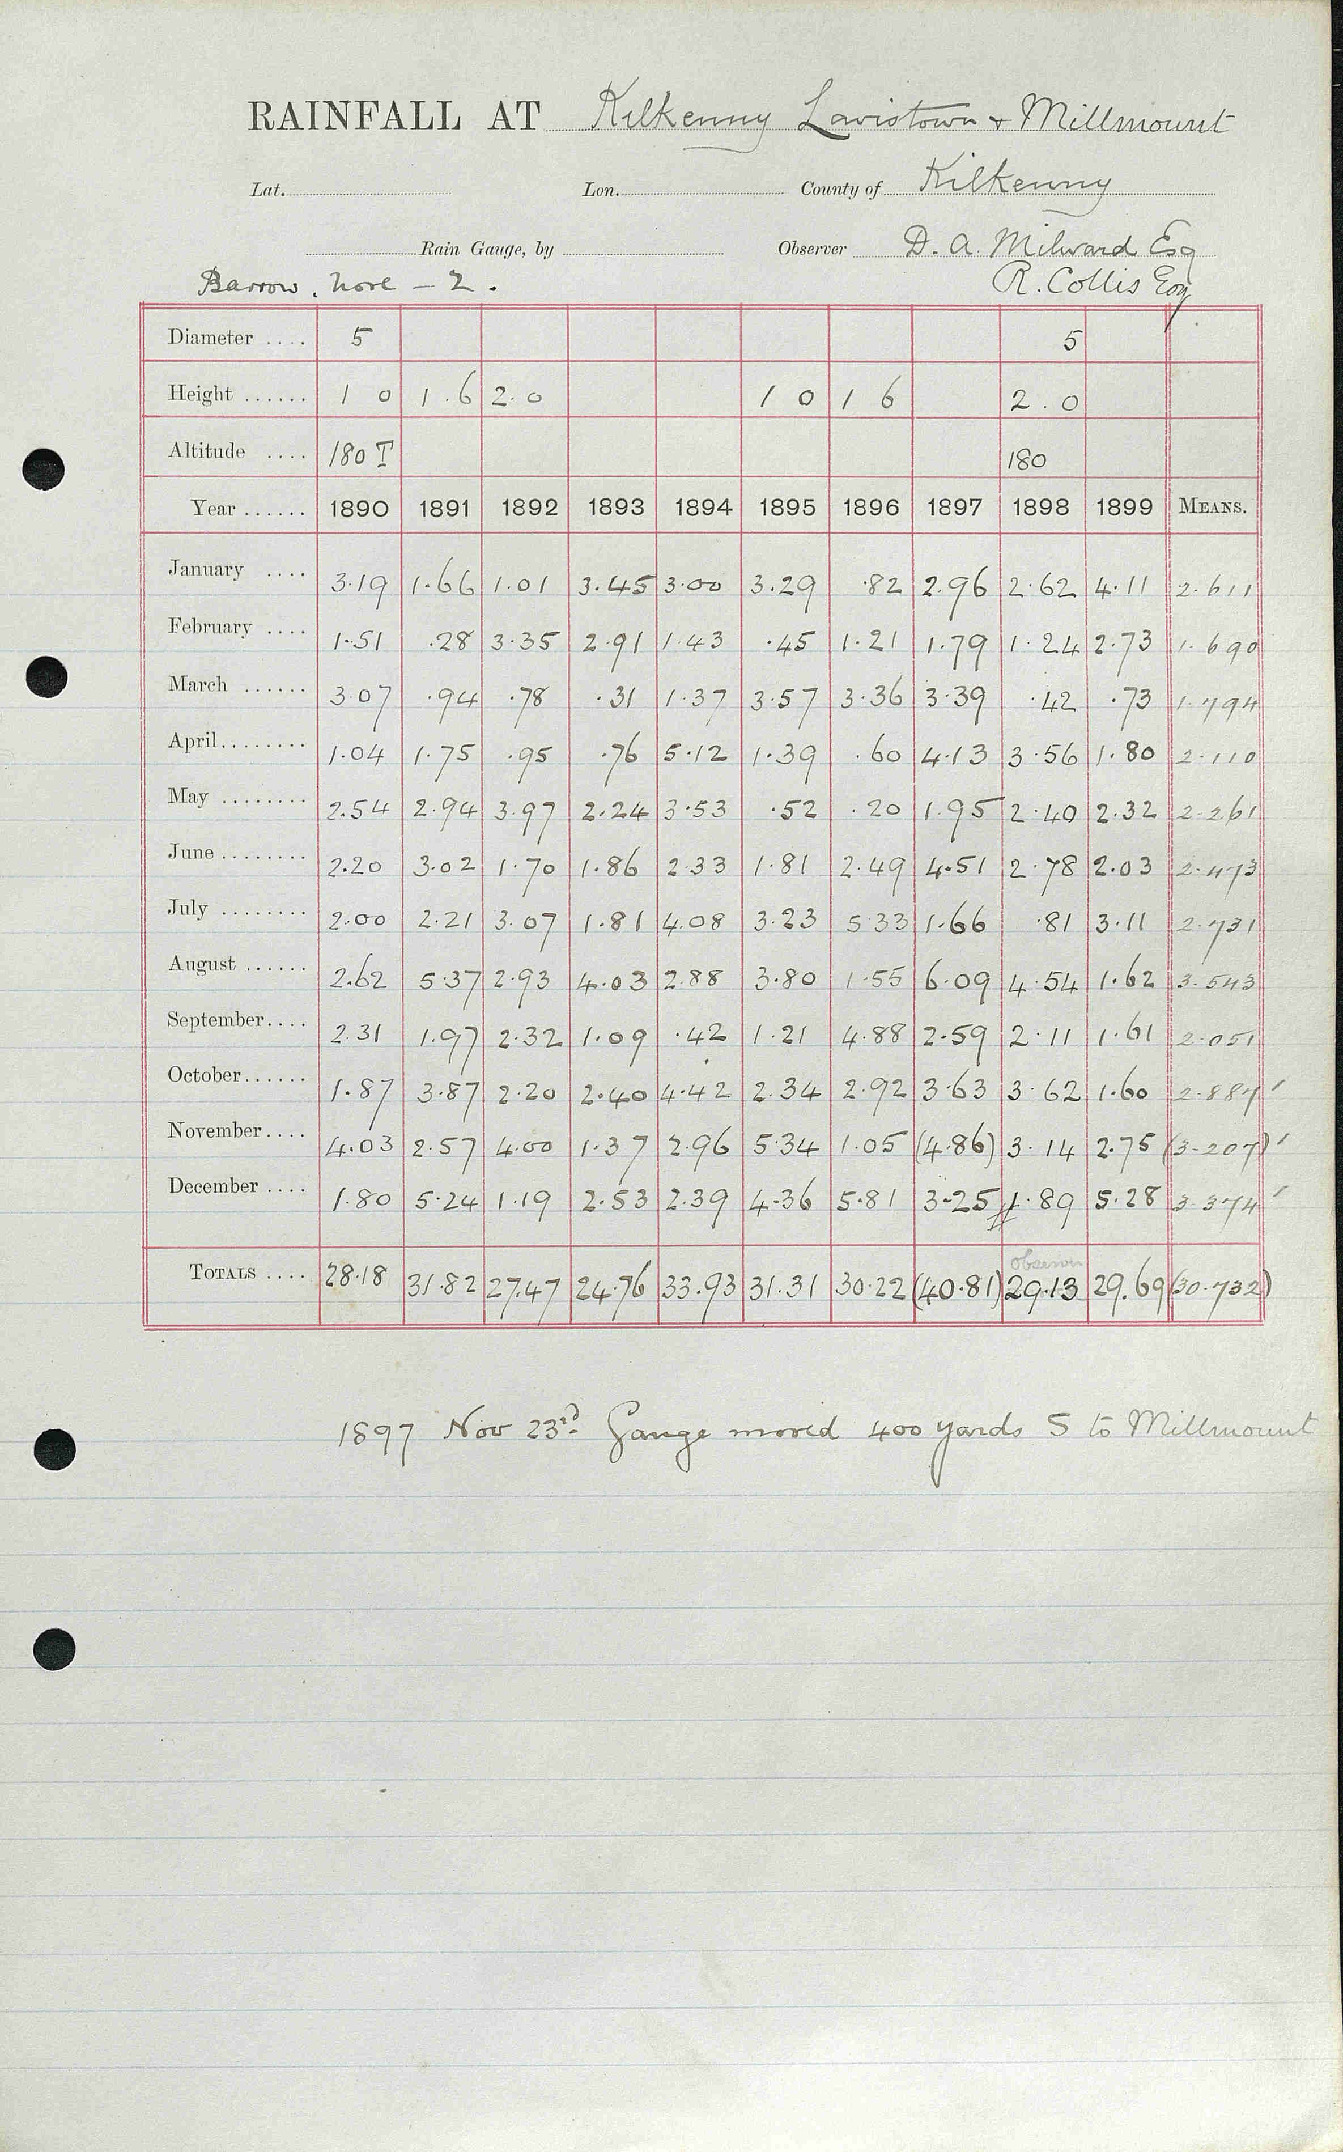 RAINFALL AT Kilkenny Lavistown & Millmount
Lat. Lon. County of Kilkenny
Rain Gauge, by Observer D. A. Milward Esq
Barrow, Nore - 2. R. Collis Esq
Diameter .... 5 5
Height ...... 1 0 1.6 2.0 1 0 1 6 2.0
Altitude .... 180 T 180
Year ...... 1890 1891 1892 1893 1894 1895 1896 1897 1898 1899 MEANS.
January .... 3.19 1.66 1.01 3.45 3.00 3.29 .82 2.96 2.62 4.11 2.611
February .... 1.51 .28 3.35 2.91 1.43 .45 1.21 1.79 1.24 2.73 1.690
March ...... 3.07 .94 .78 .31 1.37 3.57 3.36 3.39 .42 .73 1.794
April........ 1.04 1.75 .95 .76 5.12 1.39 .60 4.13 3.56 1.80 2.110
May ........ 2.54 2.94 3.97 2.24 3.53 .52 .20 1.95 2.40 2.32 2.261
June ........ 2.20 3.02 1.70 1.86 2.33 1.81 2.49 4.51 2.78 2.03 2.473
July ........ 2.00 2.21 3.07 1.81 4.08 3.23 5.33 1.66 .81 3.11 2.731
August ...... 2.62 5.37 2.93 4.03 2.88 3.80 1.55 6.09 4.54 1.62 3.543
September.... 2.31 1.97 2.32 1.09 .42 1.21 4.88 2.59 2.11 1.61 2.051
October...... 1.87 3.87 2.20 2.40 4.42 2.34 2.92 3.63 3.62 1.60 2.887'
November.... 4.03 2.57 4.00 1.37 2.96 5.34 1.05 (4.86) 3.14 2.75 (3.207)'
December .... 1.80 5.24 1.19 2.53 2.39 4.36 5.81 3.25 1.89 5.28 3.374'
observer
TOTALS .... 28.18 31.82 27.47 24.76 33.93 31.31 30.22 (40.81) 29.13 29.69 (30.732)
1897 Nov 23rd. Gauge moved 400 yards S to Millmount